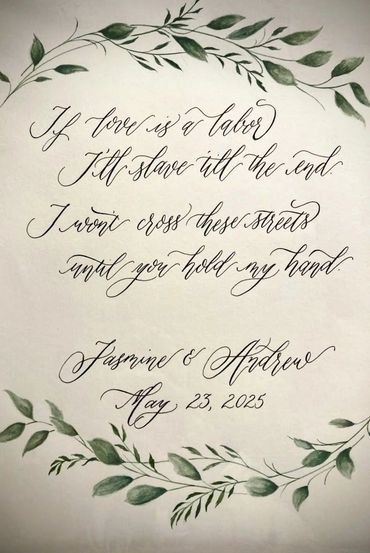 If love is a labor
I'll slave till the end.
I won't cross these streets
until you hold my hand.
Jasmine & Andrew
May 23, 2025